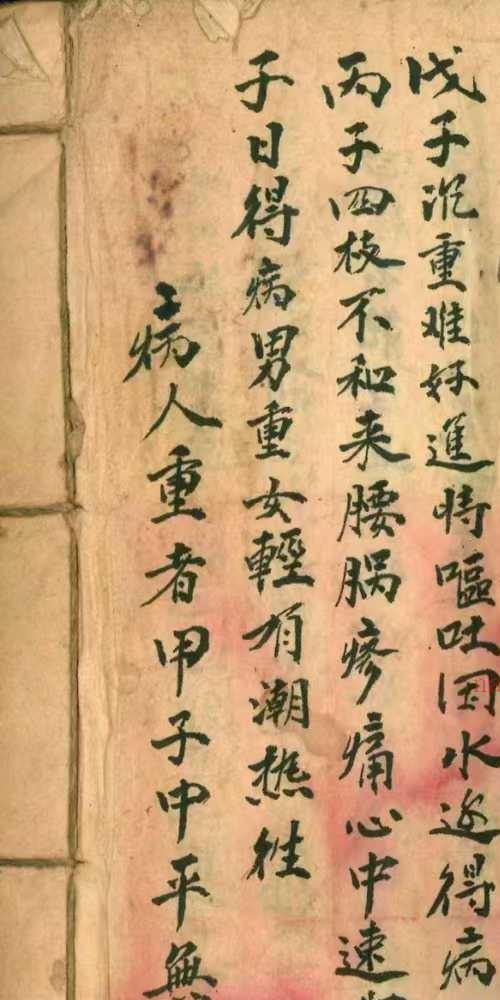 戊子沉重难好進時嘔吐因水边得病
丙子四枝不和来腰腸疼痛心中速
子日得病男重女輕有潮熱往
子病人重者甲子中平無